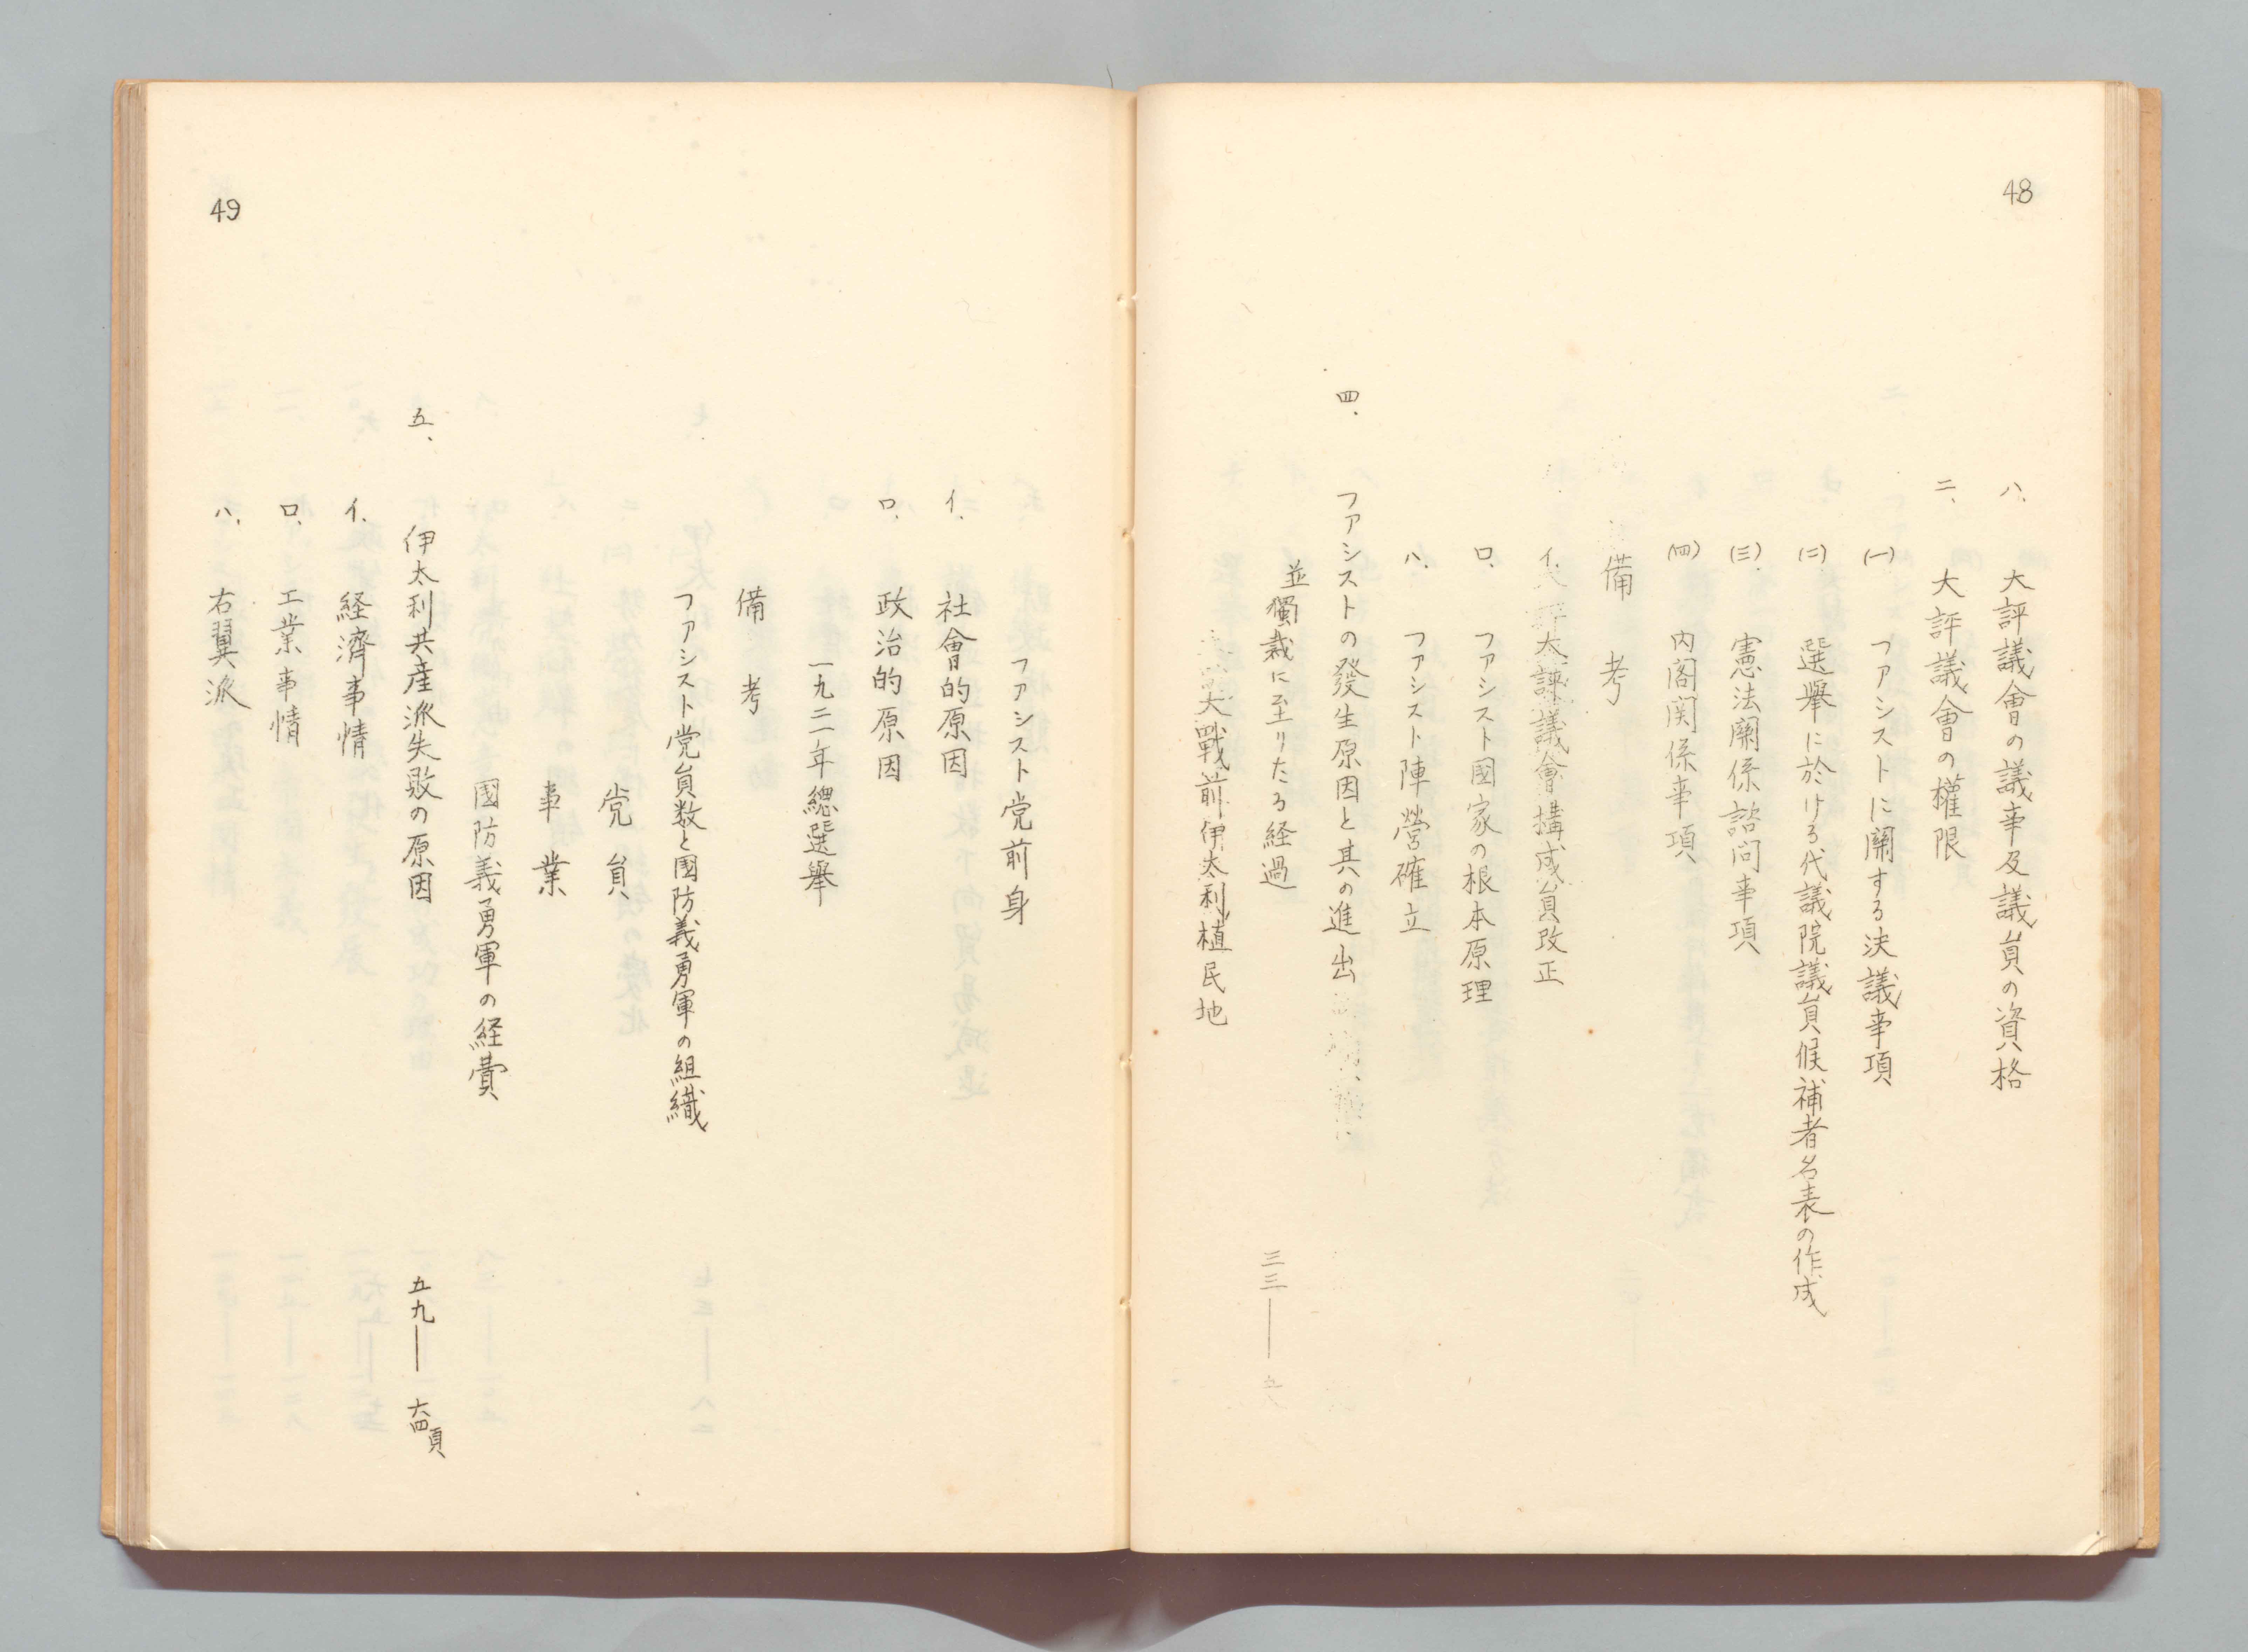 48
ハ、大評議會の議事及議員の資格
ニ、大評議會の權限
(一) ファシストに關する決議事項
(二) 選擧に於ける代議院議員候補者名表の作成
(三) 憲法關係諮問事項
(四) 内閣関係事項
備考
イ、大評議會構成員改正
ロ、ファシスト國家の根本原理
ハ、ファシスト陣營確立
四、ファシストの發生原因と其の進出
並獨裁に至りたる経過 三三―五
大戰前伊太利植民地
49
ファシスト党前身
イ、社會的原因
ロ、政治的原因
一九二一年總選擧
備考
ファシスト党員数と國防義勇軍の組織
党員
事業
國防義勇軍の経費
五、伊太利共産派失敗の原因 五九―六四頁
イ、経濟事情
ロ、工業事情
ハ、右翼派